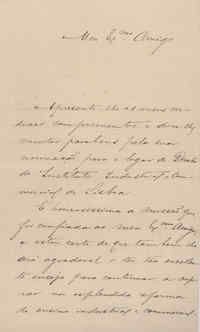 Meu Ex.mo Amigo
Apresento-lhe os meus
cumprimentos e dou-lhe
parabens pela sua
nomeação para o logar de
do Instituto Industrial e
de Lisboa
É honrosissima a missão que
foi confiada ao meu Ex.mo Amigo
e estou certo de que tambem lhe
será agradavel e
ensejo para continuar a
na esplendida reforma
do ensino industrial e commercial